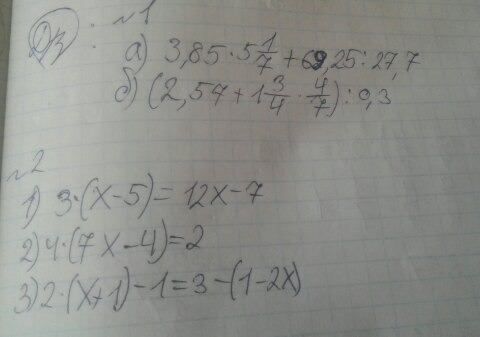 ДЗ: №1
а) 3,85·5 1/7 + 69,25:27,7
б) (2,57+1 3/4 · 4/7):0,3
№2
1) 3·(x-5)=12x-7
2) 4·(7x-4)=2
3) 2·(x+1)-1=3-(1-2x)